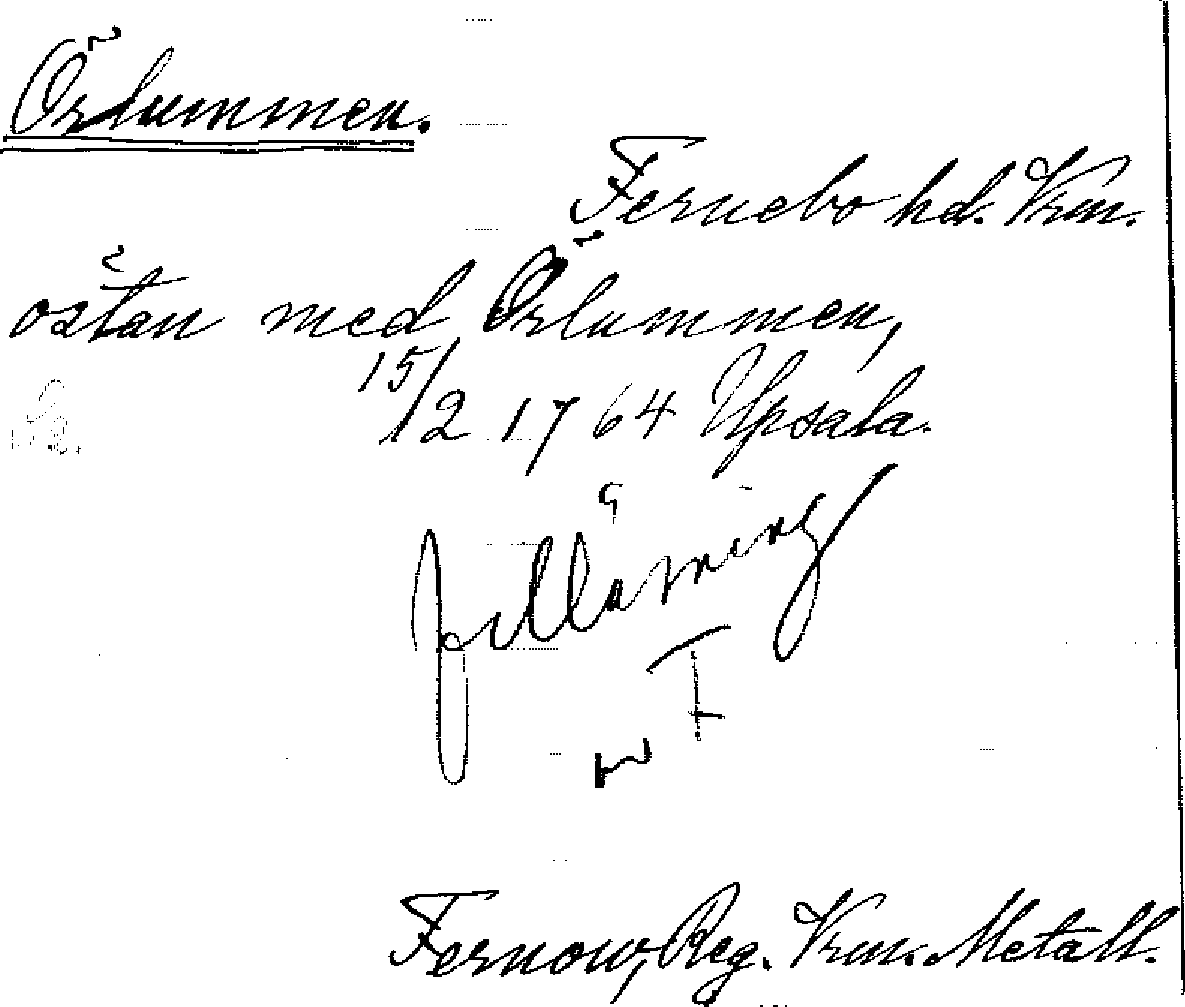 Örlummen.
Fernebo hd. Vrm.
östan med Örlummen,
15/2 1764 Upsala.
Fernow, Reg. Vrm. Metall.